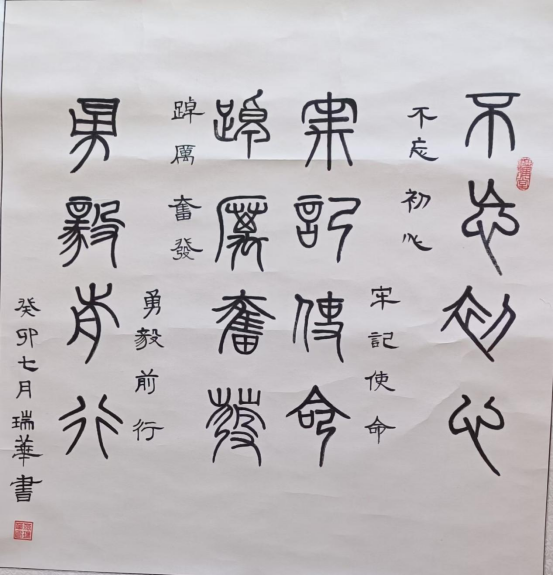 不忘初心
不忘初心
牢記使命
牢記使命
踔厲奮發
踔厲奮發
勇毅前行
勇毅前行
癸卯七月瑞華書